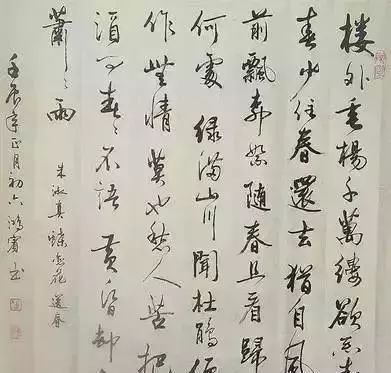 楼外垂楊千萬縷欲系青
春少住春還去猶自風
前飄柳絮随春且看歸
何處绿满山川聞杜鵑便
作無情莫也愁人苦把
酒送春〻不語黄昏却
蕭〻雨
朱淑真蝶恋花送春
壬辰年正月初六